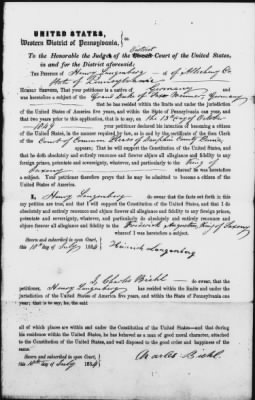 UNITED STATES,
Western District of Pennsylvania, } ss.
To the Honorable the Judges of the District Court of the United States,
in and for the District aforesaid:
THE PETITION of Henry Langenberg of Allegheny Co
State of Pennsylvania
HUMBLY SHEWETH, That your petitioner is a native of Germany
Grand Duke of Saxe Weimar, Germany
that he has resided within the limits and under the jurisdiction
of the United States of America five years, and within the State of Pennsylvania one year, and that
two years prior to this application, that is to say, on the 13th day of October
your petitioner declared his intention of becoming a citizen
of the United States, in the manner required by law, as to and by the certificate of the then Clerk
of the Court of Common Pleas of County
appears; That he will support the Constitution of the United States, and
that he doth absolutely and entirely renounce and forever abjure all allegiance and fidelity to any foreign
prince, potentate and sovereignty, whatever, and particularly to the King of
Saxony whereof he was heretofore
a subject. Your petitioner therefore prays that he may be admitted to become a citizen of the
United States of America.
I, Henry Langenberg do swear that the facts set forth in this
my petition are true, and that I will support the Constitution of the United States, and that I do
absolutely and entirely renounce and forever abjure all allegiance and fidelity to any foreign prince,
potentate and sovereignty, whatever, and particularly do absolutely and entirely renounce
and abjure all allegiance and fidelity to the Frederick Augustus, King of Saxony
of whom I was heretofore a subject.
Sworn and subscribed in open Court, this
10th day of July 1854 } Heinrich Langenberg
I, Charles Biehl do swear, that the
petitioner, Henry Langenberg has resided within the limits and under the
jurisdiction of the United States of America five years, and within the State of Pennsylvania one
year; that is to say, he, the said
all of which places are within and under the Constitution of the United States—and that during
his residence within the same, he has behaved as a man of good moral character, attached
to the Constitution of the United States, and well disposed to the good order and happiness of the
same.
Sworn and subscribed in open Court,
this 10th day of July 1854 } Charles Biehl